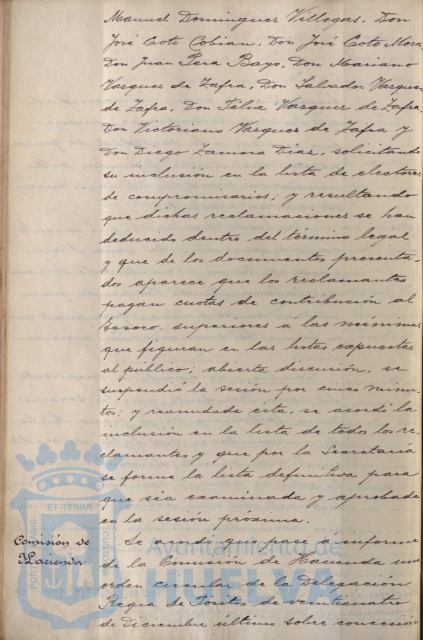 Manuel Dominguez Villegas, Don
José Coto Cobian, Don José Coto Mora,
Don Juan Pera Bayo, Don Mariano
Vazquez de Zafra, Don Salvador Vazquez
de Zafra, Don Félix Vazquez de Zafra,
Don Victoriano Vazquez de Zafra y
Don Diego Zamora Diaz, solicitando
su inclusión en la lista de electores
de compromisarios; y resultando
que dichas reclamaciones se han
deducido dentro del término legal
y que de los documentos presenta-
dos aparece que los reclamantes
pagan cuotas de contribución al
Tesoro superiores á las mínimas
que figuran en las listas expuestas
al público; abierta discusión, se
suspendió la sesión por cinco minu-
tos; y reanudada esta, se acordó la
inclusión en la lista de todos los re-
clamantes y que por la Secretaría
se forme la lista definitiva para
que séa examinada y aprobada
en la sesión próxima.
Comisión de
Hacienda
Se acordó que pase á informe
de la Comisión de Hacienda una
orden circular de la Delegación
Regia de Pósitos de veinticuatro
de diciembre último sobre concesión
ET TERRA
Ayuntamiento de
HUELVA